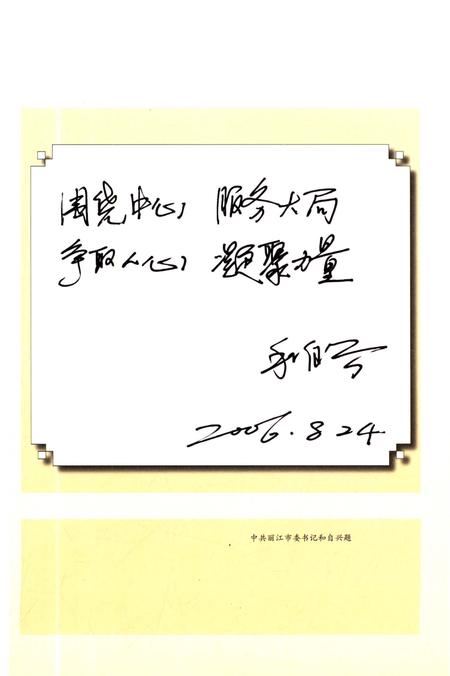 围绕中心 服务大局
争取人心 凝聚力量
和自兴
2006.8.24
中共丽江市委书记和自兴题